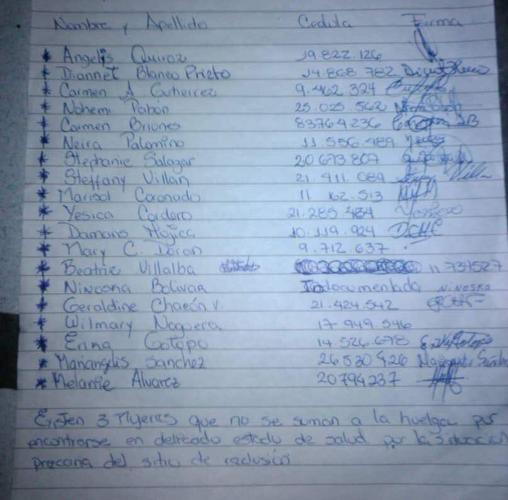 Nombre y Apellido Cedula Firma
* Angelis Quiroz 19.822.126
* Diannet Blanco Prieto 14.868 782
* Carmen A Gutierrez 9.462 324
* Nohemi Pabón 25.025 562
* Carmen Briones 83764236
* Neira Palomino 11.556 489
* Stephanie Salazar 20 693 807
* Steffany Villan 21.911 089
* Marisol Coronado 11 162.513
* Yesica Cordero 21.285 484
* Damaris Mujica 10.119.924
* Mary C. Duran 9.712 637
* Beatriz Villalba 11.734527
* Bolivar Indocumentada
* Geraldine Chacón V. 21.424.542
* Wilmary Noguera 17 949 546
* Erina Cotopo 14 526 698
* Mariangelis Sanchez 26 530 926
* Melanie Alvarez 20794237
Existen 3 Mujeres que no se suman a la huelga por
encontrarse en delicado estado de salud por la situacion
precaria del sitio de reclusión